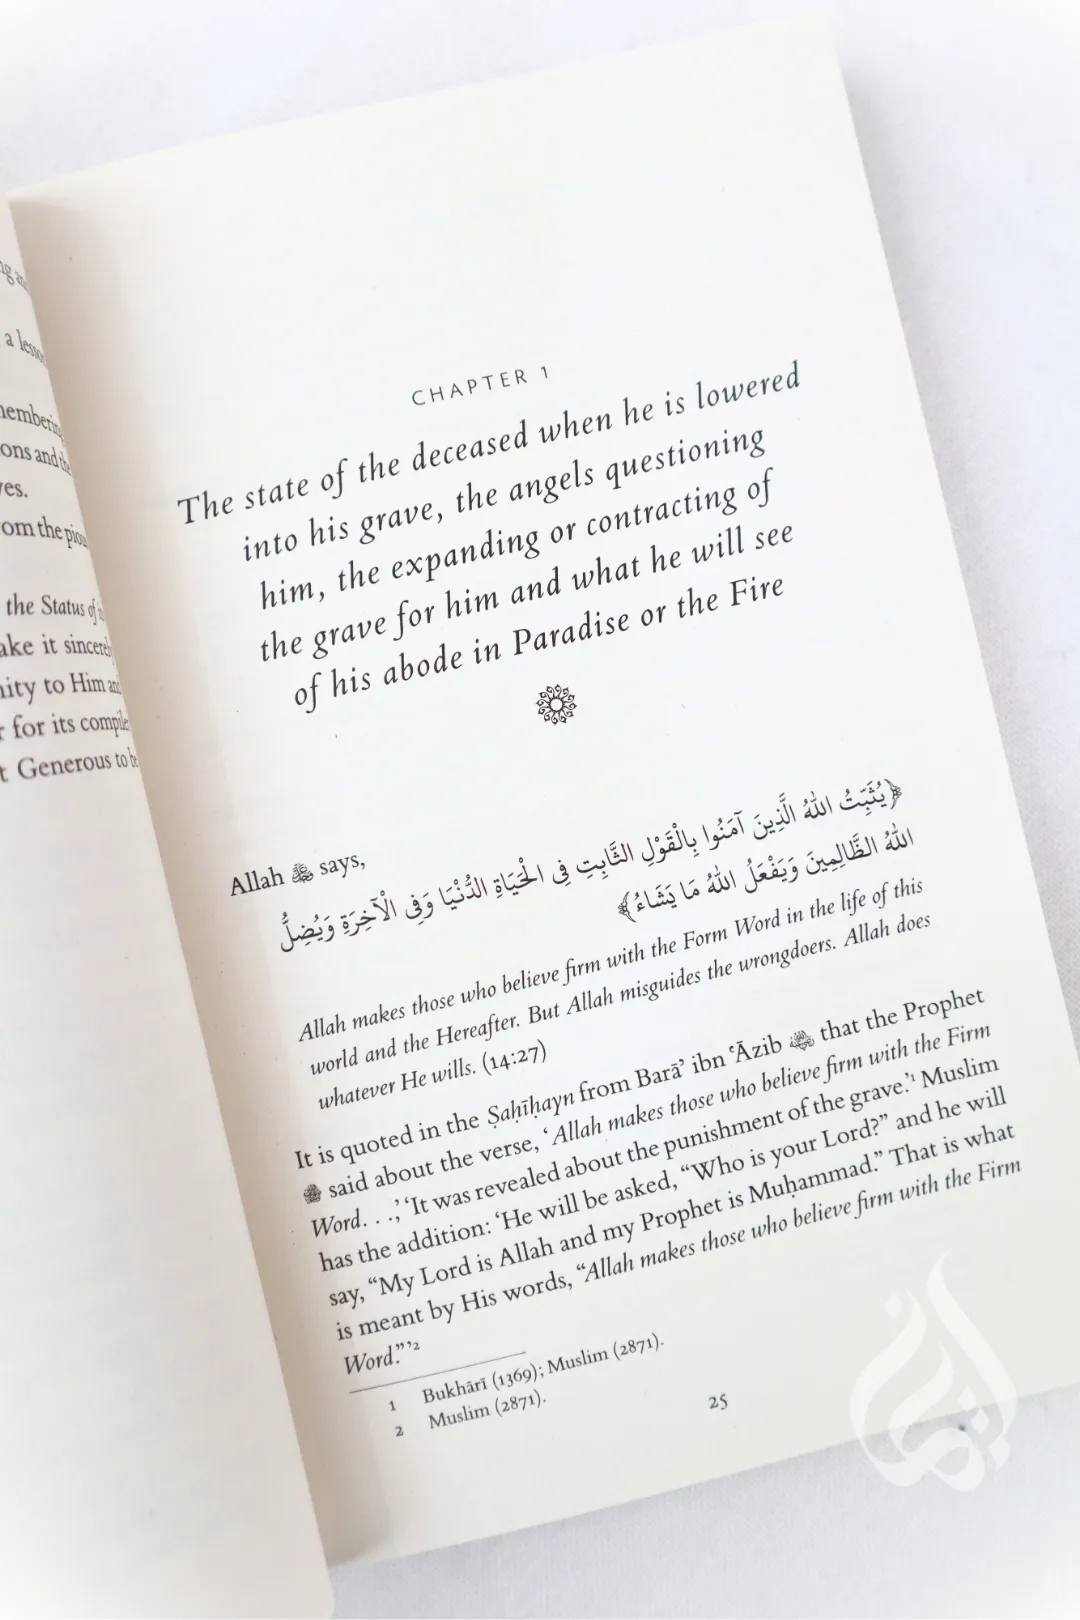 ng an
a lesso
membering
ons and the
ves.
om the piou
the Status of
ake it sincerely
nity to Him and
r for its compile
t Generous to be
CHAPTER 1
The state of the deceased when he is lowered
into his grave, the angels questioning
him, the expanding or contracting of
the grave for him and what he will see
of his abode in Paradise or the Fire
Allah ﷻ says,
﴿يُثَبِّتُ اللهُ الَّذِينَ آمَنُوا بِالْقَوْلِ الثَّابِتِ فِي الْحَيَاةِ الدُّنْيَا وَفِي الْآخِرَةِ وَيُضِلُّ
اللهُ الظَّالِمِينَ وَيَفْعَلُ اللهُ مَا يَشَاءُ﴾
Allah makes those who believe firm with the Form Word in the life of this
world and the Hereafter. But Allah misguides the wrongdoers. Allah does
whatever He wills. (14:27)
It is quoted in the Ṣaḥīḥayn from Barā’ ibn ʿĀzib that the Prophet
ﷺ said about the verse, ‘Allah makes those who believe firm with the Firm
Word. . .,’ ‘It was revealed about the punishment of the grave.’¹ Muslim
has the addition: ‘He will be asked, “Who is your Lord?” and he will
say, “My Lord is Allah and my Prophet is Muḥammad.” That is what
is meant by His words, “Allah makes those who believe firm with the Firm
Word.”’²
1 Bukhārī (1369); Muslim (2871).
2 Muslim (2871).
25